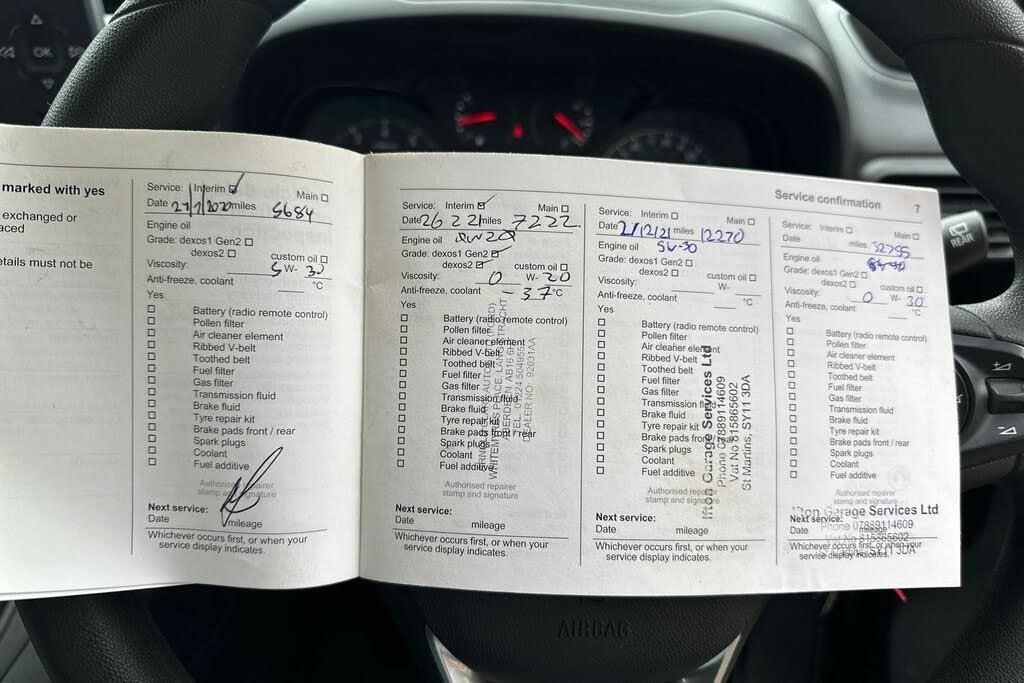 OK
marked with yes
exchanged or
aced
etails must not be
Service: Interim ☑
Main ☐
Date 27/7/2020 miles 5684
Engine oil
Grade: dexos1 Gen2 ☐
dexos2 ☐
custom oil ☐
Viscosity: 5 W- 30
Anti-freeze, coolant °C
Yes
☐ Battery (radio remote control)
☐ Pollen filter
☐ Air cleaner element
☐ Ribbed V-belt
☐ Toothed belt
☐ Fuel filter
☐ Gas filter
☐ Transmission fluid
☐ Brake fluid
☐ Tyre repair kit
☐ Brake pads front / rear
☐ Spark plugs
☐ Coolant
☐ Fuel additive
Authorised repairer
stamp and signature
Next service:
Date mileage
Whichever occurs first, or when your
service display indicates.
Service confirmation 7
Service: Interim ☑
Main ☐
Date 26 2 21 miles 7222
Engine oil 0W20
Grade: dexos1 Gen2 ☑
dexos2 ☑
custom oil ☐
Viscosity: 0 W- 20
Anti-freeze, coolant - 37 °C
Yes
☐ Battery (radio remote control)
☐ Pollen filter
☐ Air cleaner element
☐ Ribbed V-belt
☐ Toothed belt
☐ Fuel filter
☐ Gas filter
☐ Transmission fluid
☐ Brake fluid
☐ Tyre repair kit
☐ Brake pads front / rear
☐ Spark plugs
☐ Coolant
☐ Fuel additive
WHITEMYRES PLACE, LANG STRACHT
ABERDEEN AB16 6H
DEALER NO
Authorised repairer
stamp and signature
Next service:
Date mileage
Whichever occurs first, or when your
service display indicates.
Service: Interim ☐
Main ☐
Date 2/12/21 miles 12270
Engine oil 5W-30
Grade: dexos1 Gen2 ☐
dexos2 ☐
custom oil ☐
Viscosity: W-
Anti-freeze, coolant °C
Yes
☐ Battery (radio remote control)
☐ Pollen filter
☐ Air cleaner element
☐ Ribbed V-belt
☐ Toothed belt
☐ Fuel filter
☐ Gas filter
☐ Transmission fluid
☐ Brake fluid
☐ Tyre repair kit
☐ Brake pads front / rear
☐ Spark plugs
☐ Coolant
☐ Fuel additive
Ifton Garage Services Ltd
Phone 07889114609
Vat No 815865602
St Martins, SY11 3DA
Authorised repairer
stamp and signature
Next service:
Date mileage
Whichever occurs first, or when your
service display indicates.
Service: Interim ☐
Main ☐
Date miles 32795
Engine oil
Grade: dexos1 Gen2 ☐
dexos2 ☐
custom oil ☐
Viscosity: 0 W- 30
Anti-freeze, coolant °C
Yes
☐ Battery (radio remote control)
☐ Pollen filter
☐ Air cleaner element
☐ Ribbed V-belt
☐ Toothed belt
☐ Fuel filter
☐ Gas filter
☐ Transmission fluid
☐ Brake fluid
☐ Tyre repair kit
☐ Brake pads front / rear
☐ Spark plugs
☐ Coolant
☐ Fuel additive
Authorised repairer
stamp and signature
Ifton Garage Services Ltd
Phone 07889114609
Vat No 815865602
Next service:
Date mileage
Whichever occurs first, or when your
service display indicates.
REAR
AIRBAG